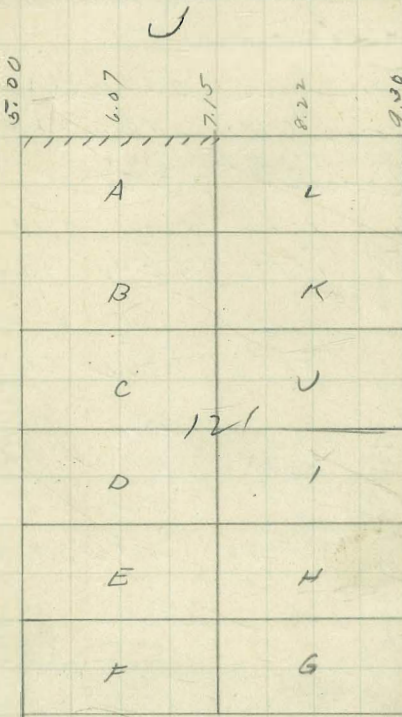 J
5.00 6.07 7.15 8.22 9.30
A L
B K
C J
121
D I
E H
F G